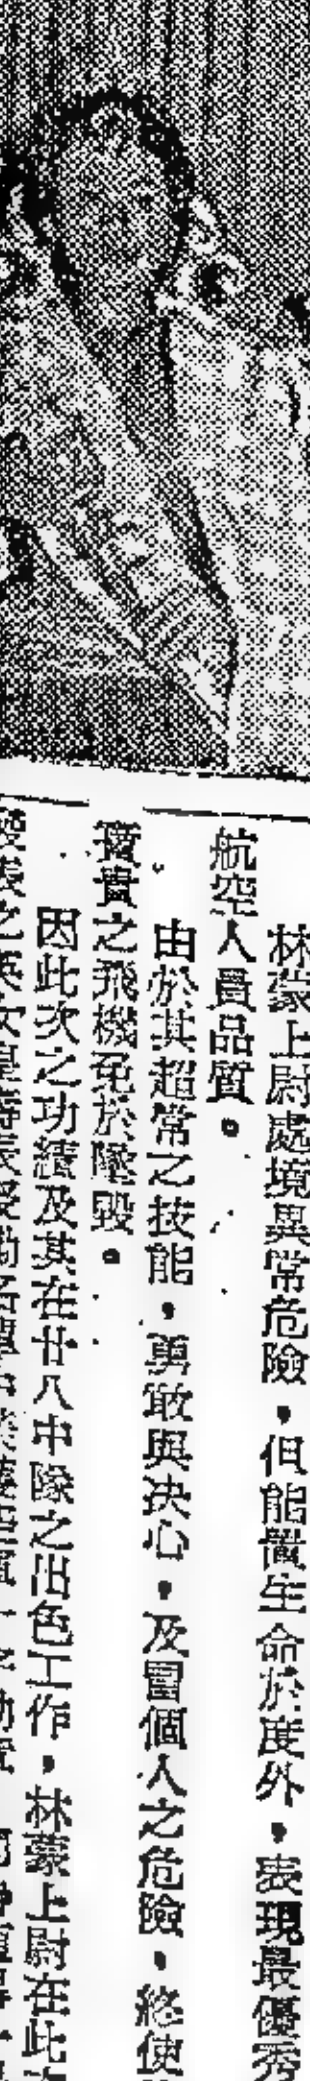 林蒙上尉處境異常危險，但能置生命於度外，表現最優秀
航空人員品質。
由於其超常之技能，勇敢與決心，及冒個人之危險，終使
寶貴之飛機免於墜毀。
因此次之功績及其在廿八中隊之出色工作，林蒙上尉在此